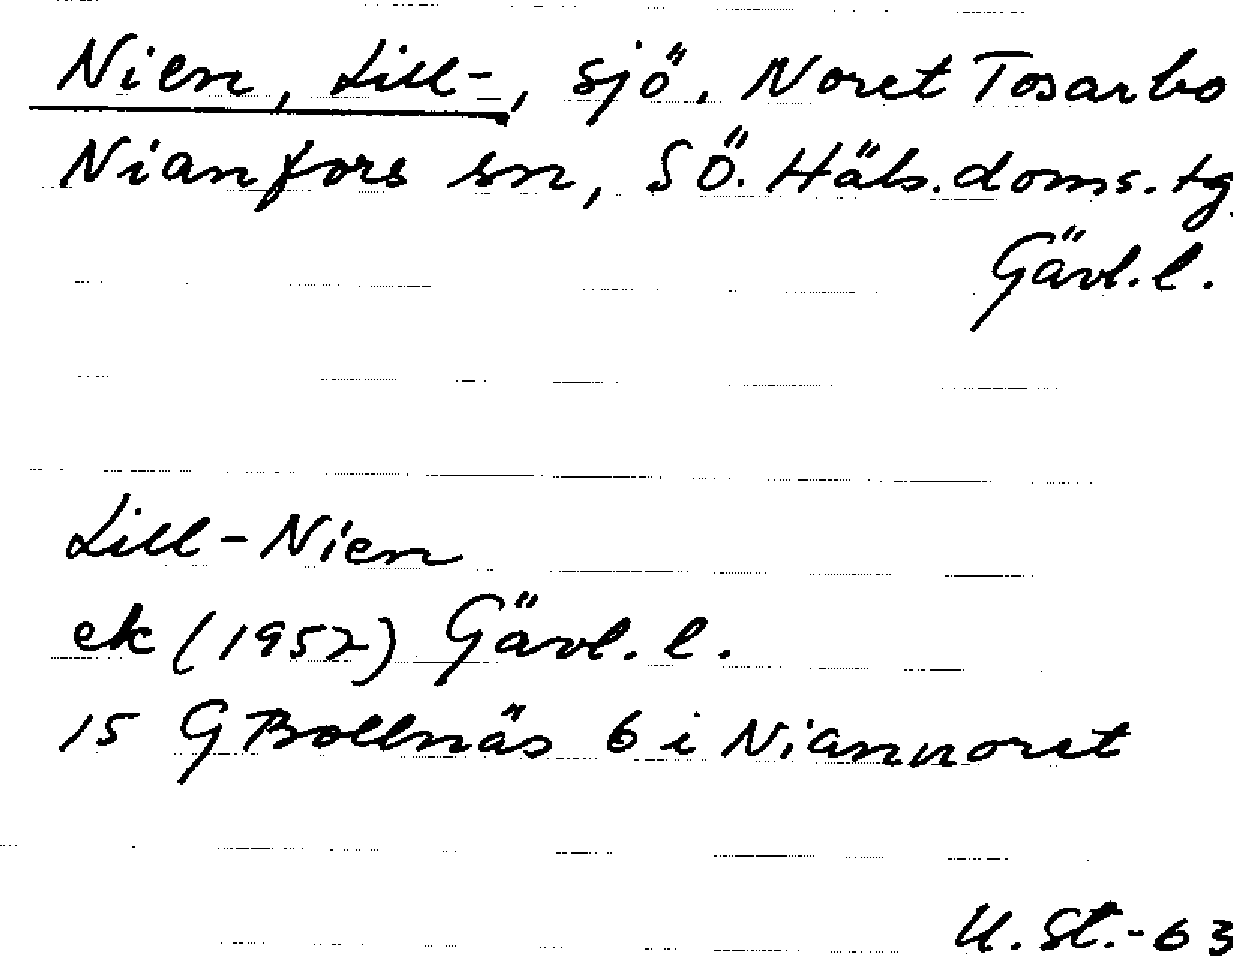 Nien, Lill-, sjö. Noret Tosarbo
Nianfors sn, SÖ. Häls. doms. tg
Gävl. l.
Lill-Nien
ek (1952) Gävl. l.
15 G Bollnäs 6 i Niannoret
U. St.-63